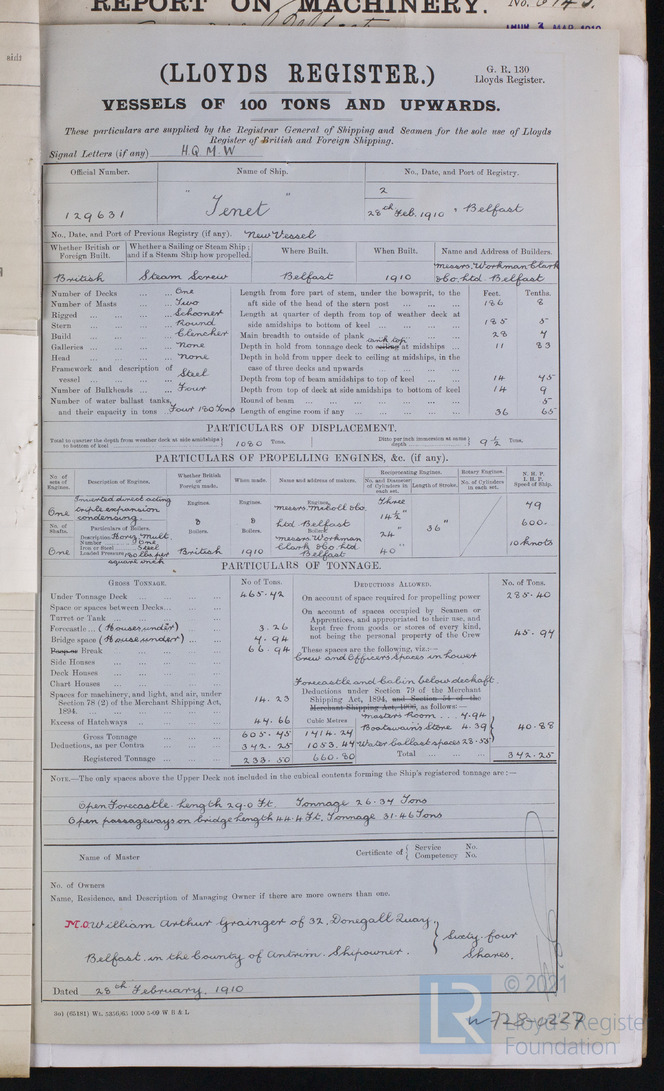 REPORT ON MACHINERY. No.
Belfast
(LLOYDS REGISTER.)
G. R. 130
Lloyds Register.
VESSELS OF 100 TONS AND UPWARDS.
These particulars are supplied by the Registrar General of Shipping and Seamen for the sole use of Lloyds
Register of British and Foreign Shipping.
Signal Letters (if any) H.Q.M.W
Official Number. Name of Ship. No., Date, and Port of Registry.
129631 " Tenet " 2
28th Feb. 1910 Belfast
No., Date, and Port of Previous Registry (if any). New Vessel
Whether British or Foreign Built. Whether a Sailing or Steam Ship; and if a Steam Ship how propelled. Where Built. When Built. Name and Address of Builders.
British Steam Screw Belfast 1910 Messrs. Workman Clark &Co. Ltd. Belfast
Number of Decks ... One Length from fore part of stem, under the bowsprit, to the Feet. Tenths.
Number of Masts ... Two aft side of the head of the stern post ... 186 8
Rigged ... Schooner Length at quarter of depth from top of weather deck at
Stern ... Round side amidships to bottom of keel ... 185 5
Build ... Clencher Main breadth to outside of plank ... 28 7
Galleries ... None Depth in hold from tonnage deck to ceiling tank top at midships ... 11 83
Head ... None Depth in hold from upper deck to ceiling at midships, in the
Framework and description of case of three decks and upwards
vessel ... Steel Depth from top of beam amidships to top of keel ... 14 45
Number of Bulkheads ... Four Depth from top of deck at side amidships to bottom of keel 14 9
Number of water ballast tanks, Round of beam ... 5
and their capacity in tons Four 180 Tons Length of engine room if any ... 36 65
PARTICULARS OF DISPLACEMENT.
Total to quarter the depth from weather deck at side amidships to bottom of keel 1080 Tons. Ditto per inch immersion at same depth 9 ½ Tons.
PARTICULARS OF PROPELLING ENGINES, &c. (if any).
No. of sets of Engines. Description of Engines. Whether British or Foreign made. When made. Name and address of makers. Reciprocating Engines. Rotary Engines. N. H. P.
No. and Diameter of Cylinders in each set. Length of Stroke. No. of Cylinders in each set. I. H. P. Speed of Ship.
One Inverted direct acting triple expansion condensing. Engines. Engines. Engines. Messrs. McColl &Co. Ltd Belfast Three 14½" 24" 40" 36" 79 600. 10 knots
No. of Shafts. Particulars of Boilers. Boilers. Boilers. Boilers.
One Description Horiz. Mult. Number One Iron or Steel Steel Loaded Pressure 180 lbs. per square inch British 1910 Messrs. Workman Clark &Co. Ltd Belfast
PARTICULARS OF TONNAGE.
GROSS TONNAGE. No of Tons. DEDUCTIONS ALLOWED. No. of Tons.
Under Tonnage Deck ... 465.42 On account of space required for propelling power 285.40
Space or spaces between Decks ... On account of spaces occupied by Seamen or
Turret or Tank ... Apprentices, and appropriated to their use, and
Forecastle ... (Houses under) 3.26 kept free from goods or stores of every kind,
Bridge space (House under) 7.94 not being the personal property of the Crew 45.97
Poop or Break ... 66.94 These spaces are the following, viz.:—
Side Houses ... Crew and Officers Spaces in lower
Deck Houses
Chart Houses ... Forecastle and Cabin below deck aft.
Spaces for machinery, and light, and air, under Deductions under Section 79 of the Merchant
Section 78 (2) of the Merchant Shipping Act, Shipping Act, 1894, and Section 54 of the
1894. ... 14.23 Merchant Shipping Act, 1906, as follows:—
Excess of Hatchways ... 44.66 Cubic Metres Masters Room ... 7.94
Gross Tonnage ... 605.75 1714.24 Boatswain's Store 4.39 40.88
Deductions, as per Contra ... 372.25 1053.44 Water ballast spaces 28.55
Registered Tonnage ... 233.50 660.80 Total ... 372.25
NOTE.—The only spaces above the Upper Deck not included in the cubical contents forming the Ship's registered tonnage are:—
Open Forecastle Length 29.0 Ft. Tonnage 26.37 Tons
Open passageways on bridge Length 44.4 Ft. Tonnage 31.46 Tons
Name of Master Certificate of { Service No.
Competency No.
No. of Owners
Name, Residence, and Description of Managing Owner if there are more owners than one.
M.O. William Arthur Grainger of 32, Donegall Quay,
Belfast in the County of Antrim. Shipowner. } Sixty four Shares.
Dated 28th February, 1910
3o1 (65181) Wt. 5356/65 1000 5-09 W B & L
© 2021
LR Lloyd's Register
Foundation
W728-0227